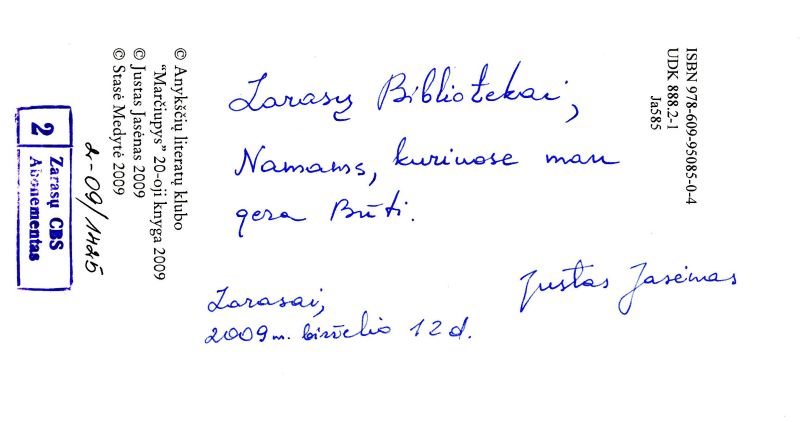 Zarasų Bibliotekai,
Namams, kuriuose man
gera Būti.
Justas Jasėnas
Zarasai,
2009 m. birželio 12 d.
ISBN 978-609-95085-0-4
UDK 888.2-1
Ja585
© Anykščių literatų klubo
"Marčiupys" 20-oji knyga 2009
© Justas Jasėnas 2009
© Stasė Medytė 2009
2-09/1425
2
Zarasų CBS
Abonementas